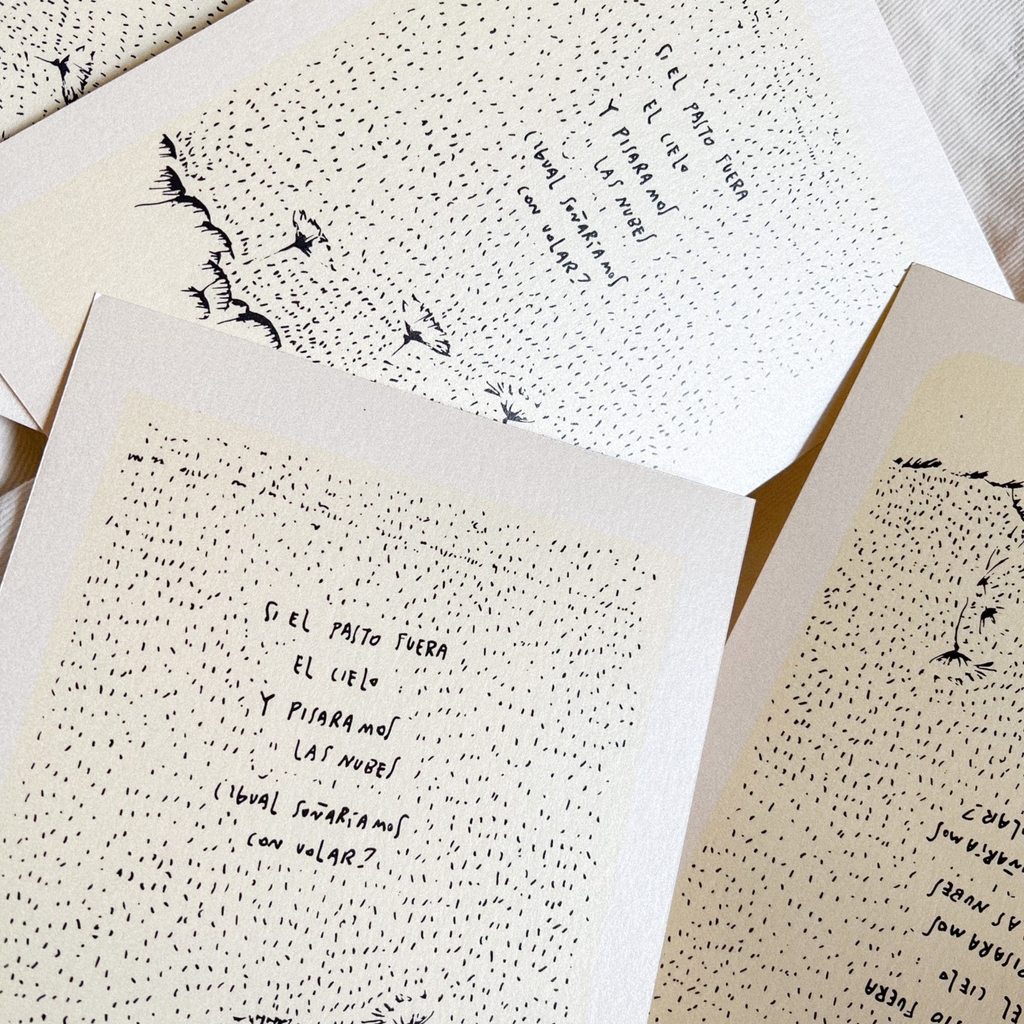 SI EL PASTO FUERA
EL CIELO
Y PISARAMOS
LAS NUBES
¿IGUAL SOÑARÍAMOS
CON VOLAR?
SI EL PASTO FUERA
EL CIELO
Y PISARAMOS
LAS NUBES
¿IGUAL SOÑARÍAMOS
CON VOLAR?
FUERA
EL CIELO
PISARAMOS
NUBES